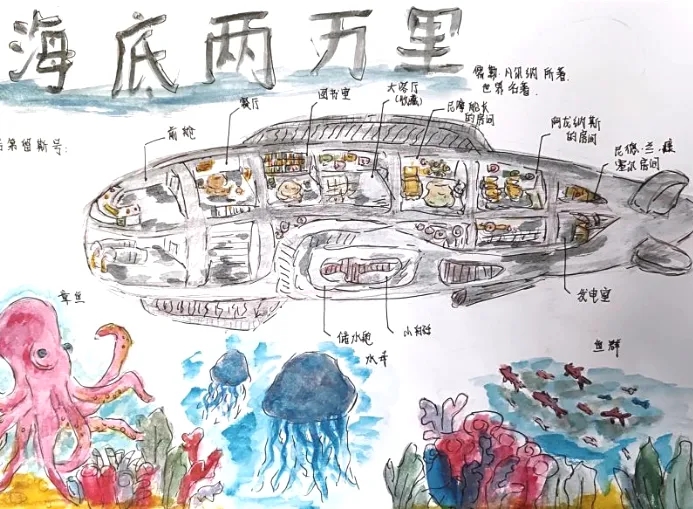 海底两万里
儒勒·凡尔纳 所著.
世界名著.
图书室
大客厅
(收藏)
餐厅
尼摩船长
的房间
前舱
阿龙纳斯
的房间
尼德·兰·康
塞尔房间
发电室
储水舱
小艇
章鱼
水母
鱼群